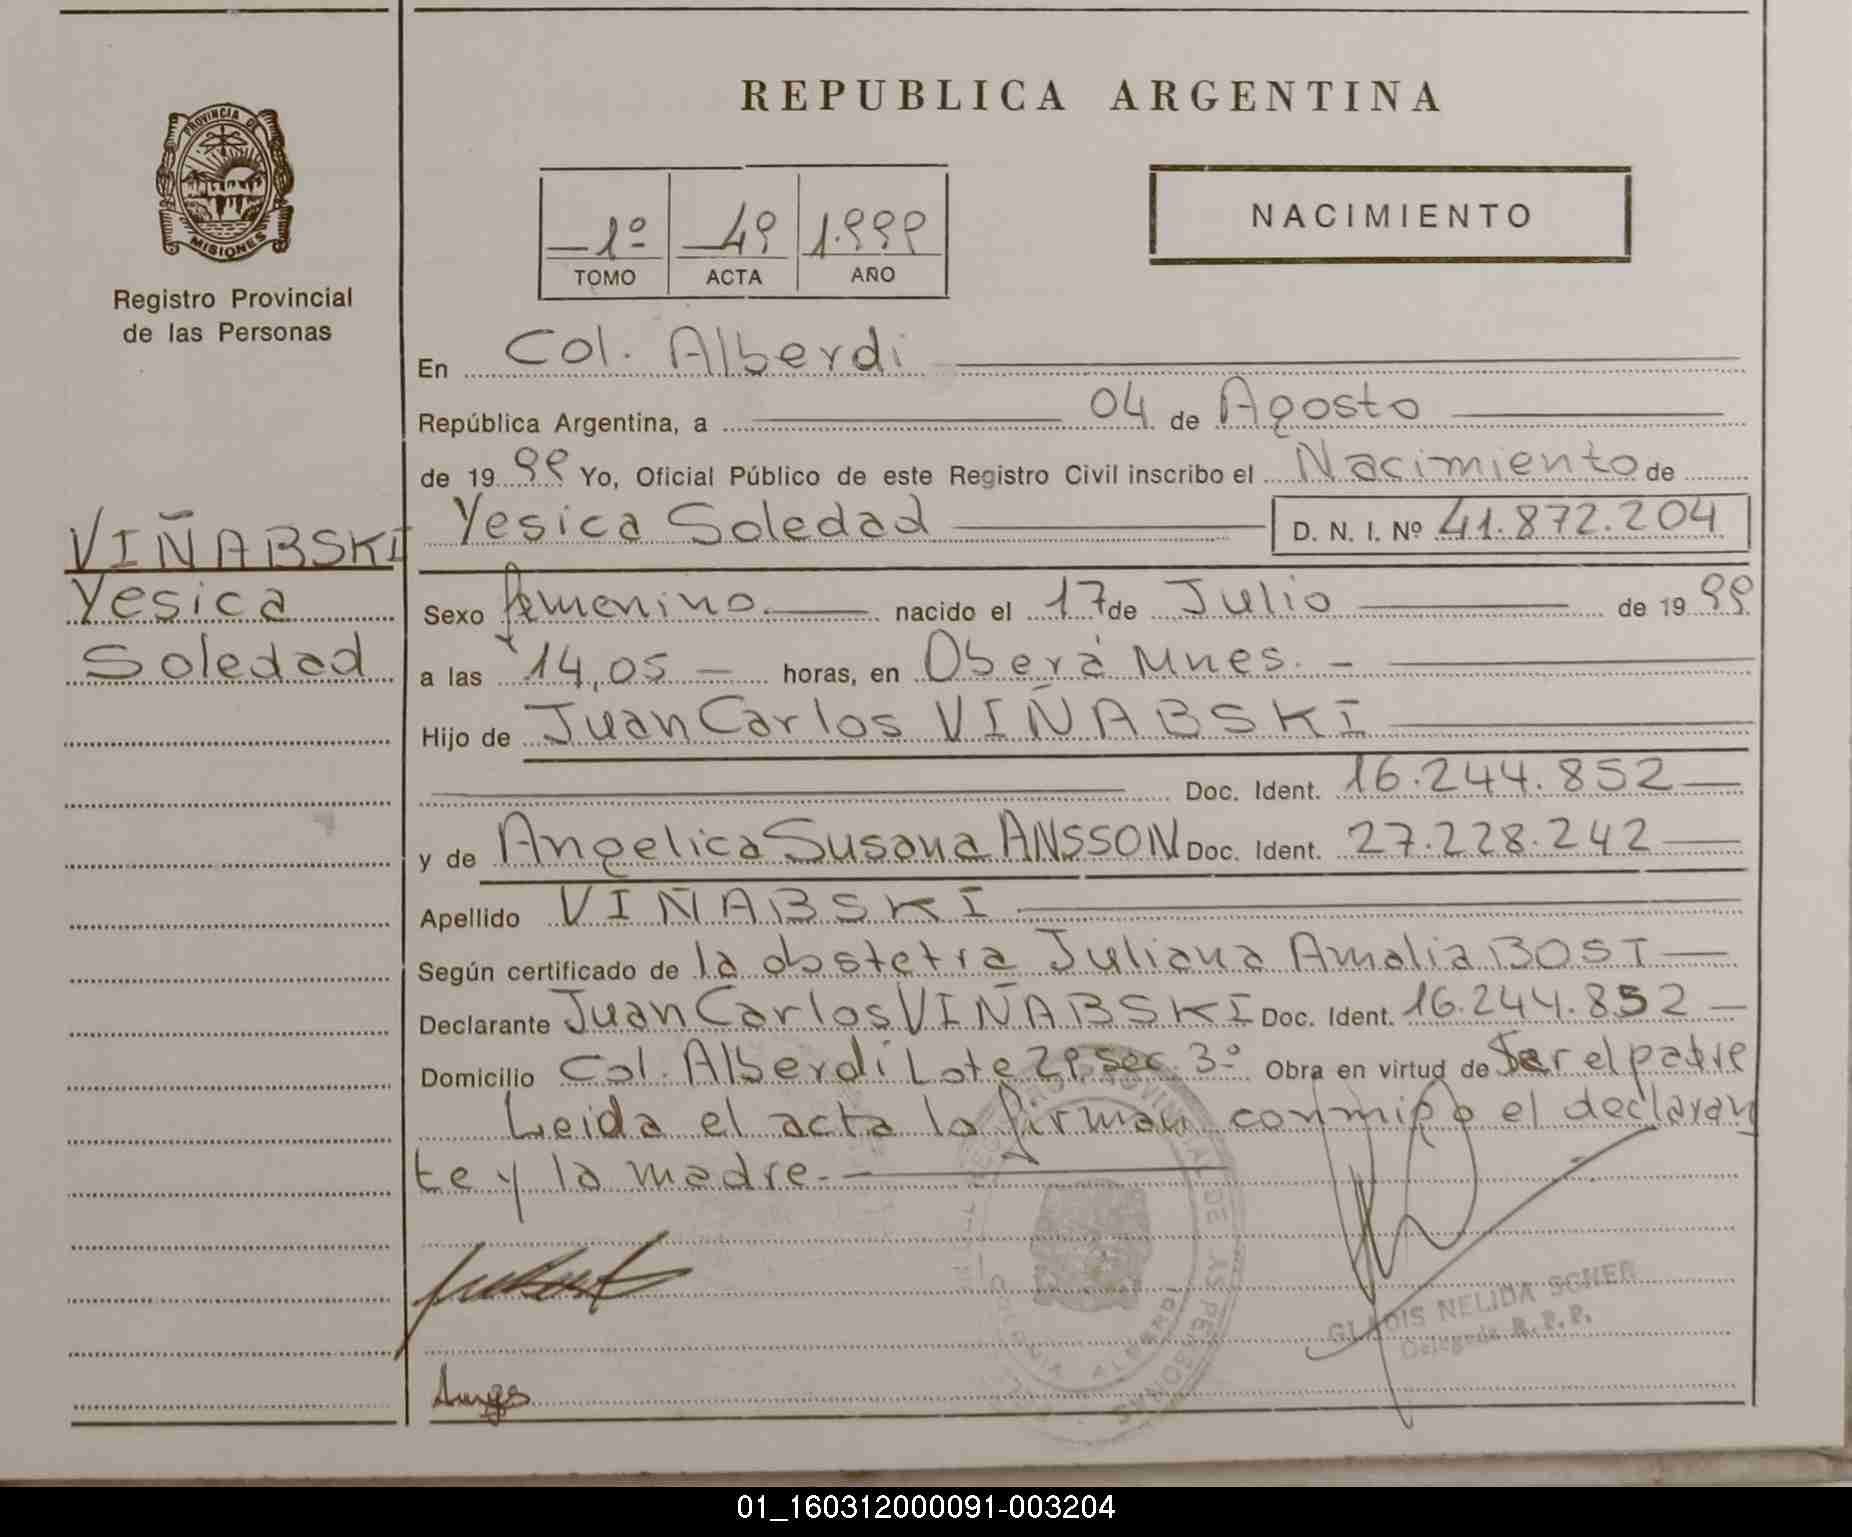 REPUBLICA ARGENTINA
PROVINCIA DE
MISIONES
Registro Provincial
de las Personas
1º 49 1.999
TOMO ACTA AÑO
NACIMIENTO
En Col. Alberdi
República Argentina, a 04 de Agosto
de 19 99 Yo, Oficial Público de este Registro Civil inscribo el Nacimiento de
VIÑABSKI
Yesica
Soledad
Yesica Soledad D. N. I. Nº 41.872.204
Sexo femenino. nacido el 17 de Julio de 19 99
a las 14,05 horas, en Oberá Mnes.
Hijo de Juan Carlos VIÑABSKI
Doc. Ident. 16.244.852
y de Angelica Susana ANSSON Doc. Ident. 27.228.242
Apellido VIÑABSKI
Según certificado de la obstetra Juliana Amalia BOST
Declarante Juan Carlos VIÑABSKI Doc. Ident. 16.244.852
Domicilio Col. Alberdi Lote 29 sec. 3º Obra en virtud de Ser el padre
Leida el acta la firman conmigo el declaran
te y la madre.
GLADIS NELIDA SCHER
Delegada R.P.P.
01_160312000091-003204